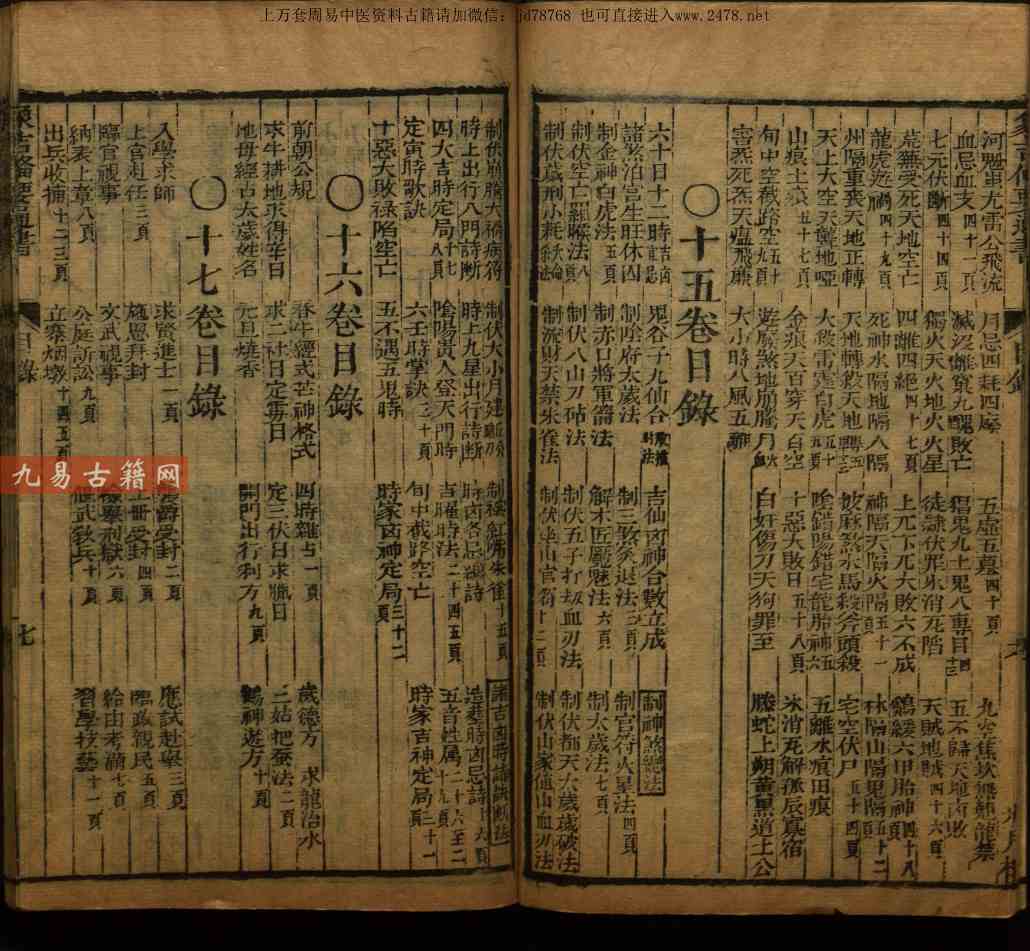 上万套周易中医资料古籍请加微信：jd78768 也可直接进入www.2478.net
河魁蚩尤雷公飛流 月忌四耗四廢 五虛五墓四十頁 九空焦坎無魁龍禁
血忌血支四十一頁 滅沒離窠九醜敗亡 猖鬼九土鬼八專目 五不歸天地凶敗
七元伏斷四十四頁 獨火天火地火火星 徒隸伏罪氷消瓦陷 天賊地賊四十六頁
荒蕪受死天地空亡 四離四絕四十七頁 上兀下兀大敗六不成 鶴緩六甲胎神四十八
龍虎遊禍四十九頁 死神水隔地隔八隔 神隔天隔火隔五十一 林隔山隔鬼隔五十二
州隔重喪天地正轉 天地轉殺天地轉 披麻煞木馬殺斧頭殺 宅空伏尸五十四頁
天上大空天聾地啞 大殺雷霆白虎 陰錯陽錯宅龍胎神 五離水痕田痕
山痕土痕五十七頁 金痕天百穿天白空 十惡大敗日五十八頁 氷消瓦解孤辰寡宿
旬中空截路空五九頁 遊廢煞地崩騰月火 自奸傷刀天狗罪至 滕蛇上朔黃黑道土公
害炁死炁天瘟飛廉 大小時八風五離
〇十五卷目錄
六十日十二時吉凶 鬼谷子九仙台 吉仙凶神合數立成 制神煞總法
諸煞泊宮生旺休囚 制陰府太歲法 制三殺灸退法三頁 制官符火星法四頁
制金神白虎法五頁 制赤口將軍箭法 解木匠魘魅法六頁 制大歲法七頁
制伏空亡羅睺法八頁 制伏八山刀砧法 制伏五子打刼血刃法 制伏都天大歲歲破法
制伏爲刑小耗 制流財天禁朱雀法 制伏坐山官符十二頁 制伏山家値山血刃法
制伏崩騰大禍病符 制伏大小月建 制檯紅 朱雀十五頁 諸吉凶時論訣斷法
時上出行八門詩斷 時上九星出行詩斷 時凶各忌總詩 造葬時凶忌詩十六頁
四大吉時定局十七八頁 陰陽貴人登天門時 吉曜時法二十四五頁 五音姓属二十六至二十九頁
定寅時歌訣 六壬時掌訣三十頁 旬中截路空亡 時家吉神定局三十一
十惡大敗祿陷空亡 五不遇五鬼時 時家凶神定局三十二頁
〇十六卷目錄
前朝公規 春牛經式芒神格式 四時雜占一頁 歲德方 求龍治水
求牛耕地求得辛日 求二社日定毒日 定三伏日求臘日 三姑把蚕法二頁
地母經古太歲姓名 元旦燒香 開門出行利方九頁 鶴神遊方十頁
〇十七卷目錄
入學求師 求賢進士一頁 襲爵受封二頁 應試赴舉三頁
上官赴任三頁 施恩拜封 上冊受封四頁 臨政親民五頁
臨官視事 文武視事 獄六頁 給由考滿七頁
納表上章八頁 公庭訴訟九頁 武教兵十頁 習學技藝十一頁
出兵收捕十二三頁 立寨烟墩十四五頁
目錄
七
九易古籍网